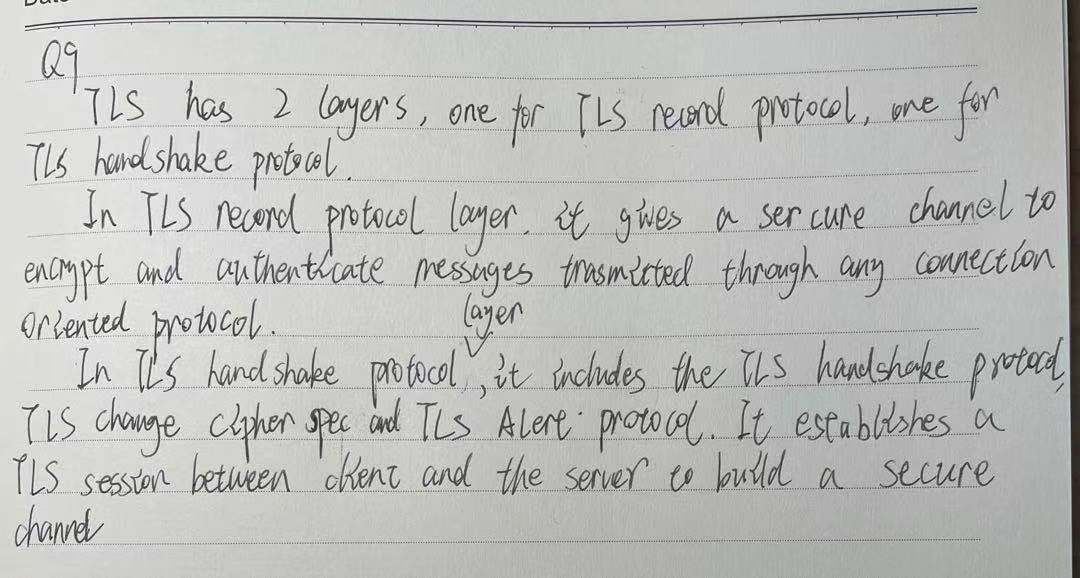 Q9
TLS has 2 layers, one for TLS record protocol, one for
TLS handshake protocol.
In TLS record protocol layer. it gives a sercure channel to
encrypt and authenticate messages trasmitted through any connection
oriented protocol.
layer
In TLS handshake protocol, it includes the TLS handshake protocol,
TLS change cipher spec and TLS Alert protocol. It establishes a
TLS session between client and the server to build a secure
channel